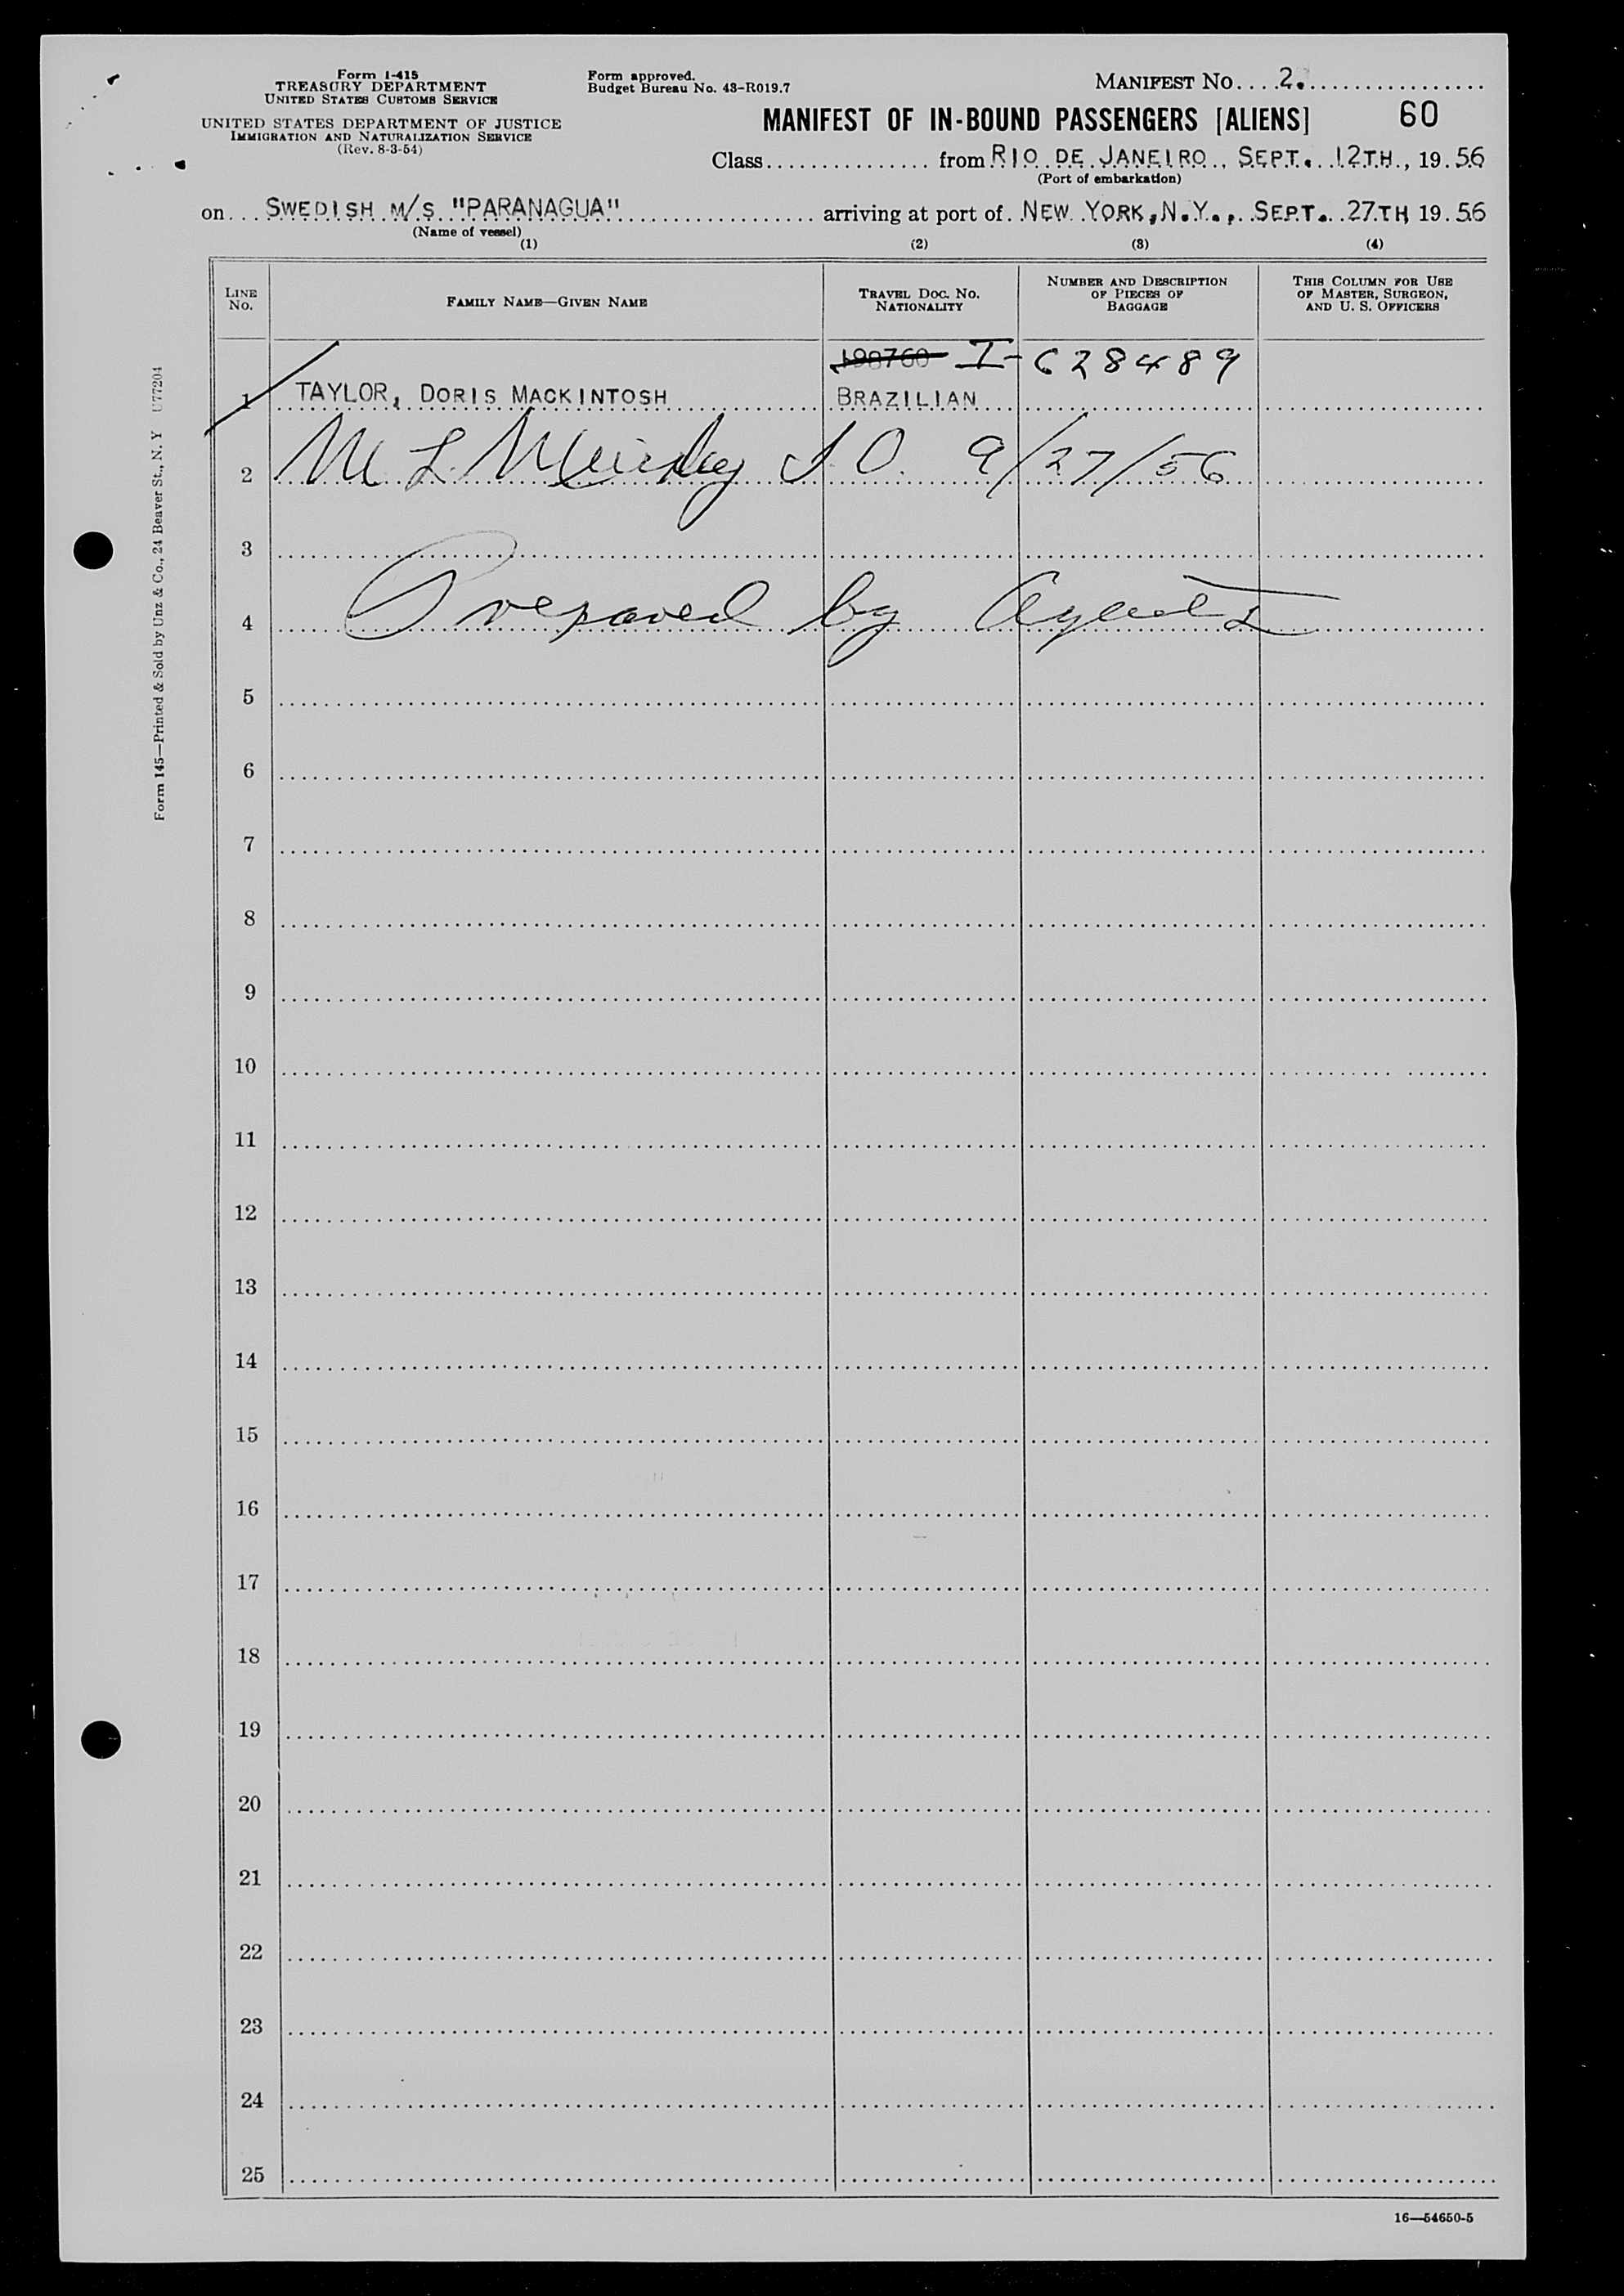 Form I-415
TREASURY DEPARTMENT
UNITED STATES CUSTOMS SERVICE
UNITED STATES DEPARTMENT OF JUSTICE
IMMIGRATION AND NATURALIZATION SERVICE
(Rev. 8-3-54)
Form approved.
Budget Bureau No. 43-R019.7
MANIFEST NO....2.
MANIFEST OF IN-BOUND PASSENGERS [ALIENS] 60
Class............... from RIO DE JANEIRO., SEPT. 12TH., 19.56
(Port of embarkation)
on...SWEDISH M/S "PARANAGUA"................ arriving at port of NEW YORK, N.Y., SEPT. 27TH 19.56
(Name of vessel)
(1) (2) (3) (4)
LINE NO.
FAMILY NAME—GIVEN NAME
TRAVEL DOC. NO. NATIONALITY
NUMBER AND DESCRIPTION OF PIECES OF BAGGAGE
THIS COLUMN FOR USE OF MASTER, SURGEON, AND U. S. OFFICERS
I-628489
1 TAYLOR, DORIS MACKINTOSH BRAZILIAN
2 M L I.O. 9/27/56
3
4 Prepared by Agents
5
6
7
8
9
10
11
12
13
14
15
16
17
18
19
20
21
22
23
24
25
16—54650-5
Form 145—Printed & Sold by Unz & Co., 24 Beaver St., N. Y U77204